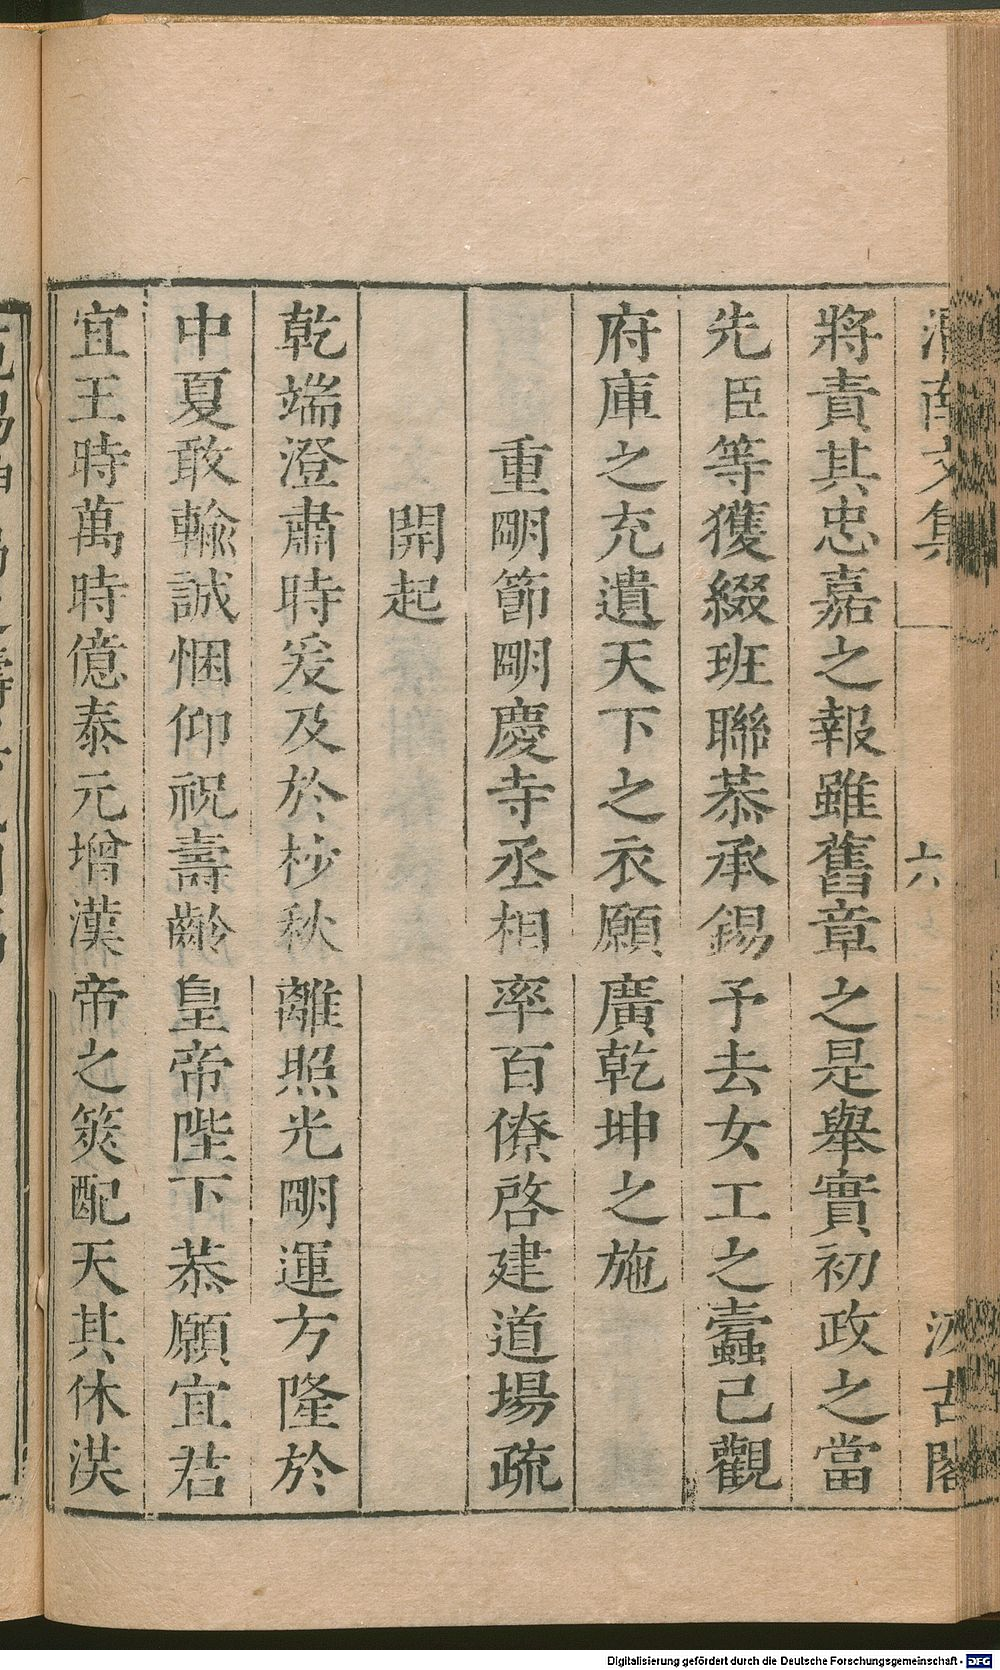 將責其忠嘉之報雖舊章之是舉實初政之當
先臣等獲綴班聯恭承錫予去女工之蠹已觀
府庫之充遺天下之衣願廣乾坤之施
重明節明慶寺丞相率百僚啓建道場疏
開起
乾端澄肅時爰及於杪秋離照光明運方隆於
中夏敢輸誠悃仰祝壽齡皇帝陛下恭願宜君
宜王時萬時億泰元增漢帝之筴配天其休淇
文集
六
古閣
Digitalisierung gefördert durch die Deutsche Forschungsgemeinschaft - DFG